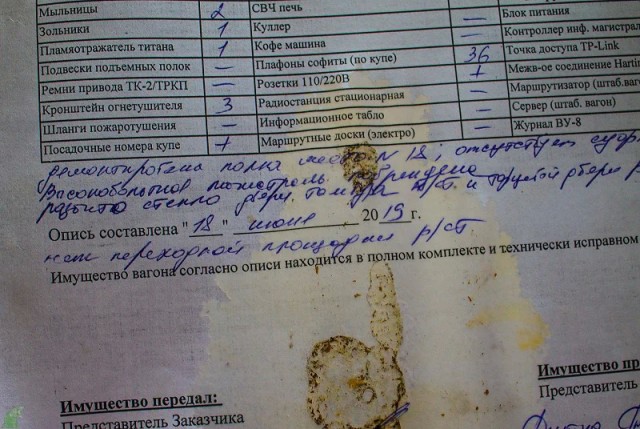 Мыльницы 2 СВЧ печь — Блок питания
Зольники 1 Куллер — Контроллер инф. магистрал
Пламяотражатель титана 1 Кофе машина — Точка доступа TP-Link
Подвески подъемных полок — Плафоны софиты (по купе) 36 Межв-ое соединение Hartin
Ремни привода ТК-2/ТРКП — Розетки 110/220В + Маршрутизатор (штаб. вагон)
Кронштейн огнетушителя 3 Радиостанция стационарная — Сервер (штаб. вагон)
Шланги пожаротушения — Информационное табло — Журнал ВУ-8
Посадочные номера купе + Маршрутные доски (электро) —
полка место N 18, отсутствует
магистраль
разбито стекло двери тамбура и двери
Опись составлена "18" июня 2019 г.
переходной площадки р/ст.
Имущество вагона согласно описи находится в полном комплекте и технически исправном
Имущество передал:
Представитель Заказчика
Имущество пр
Представитель